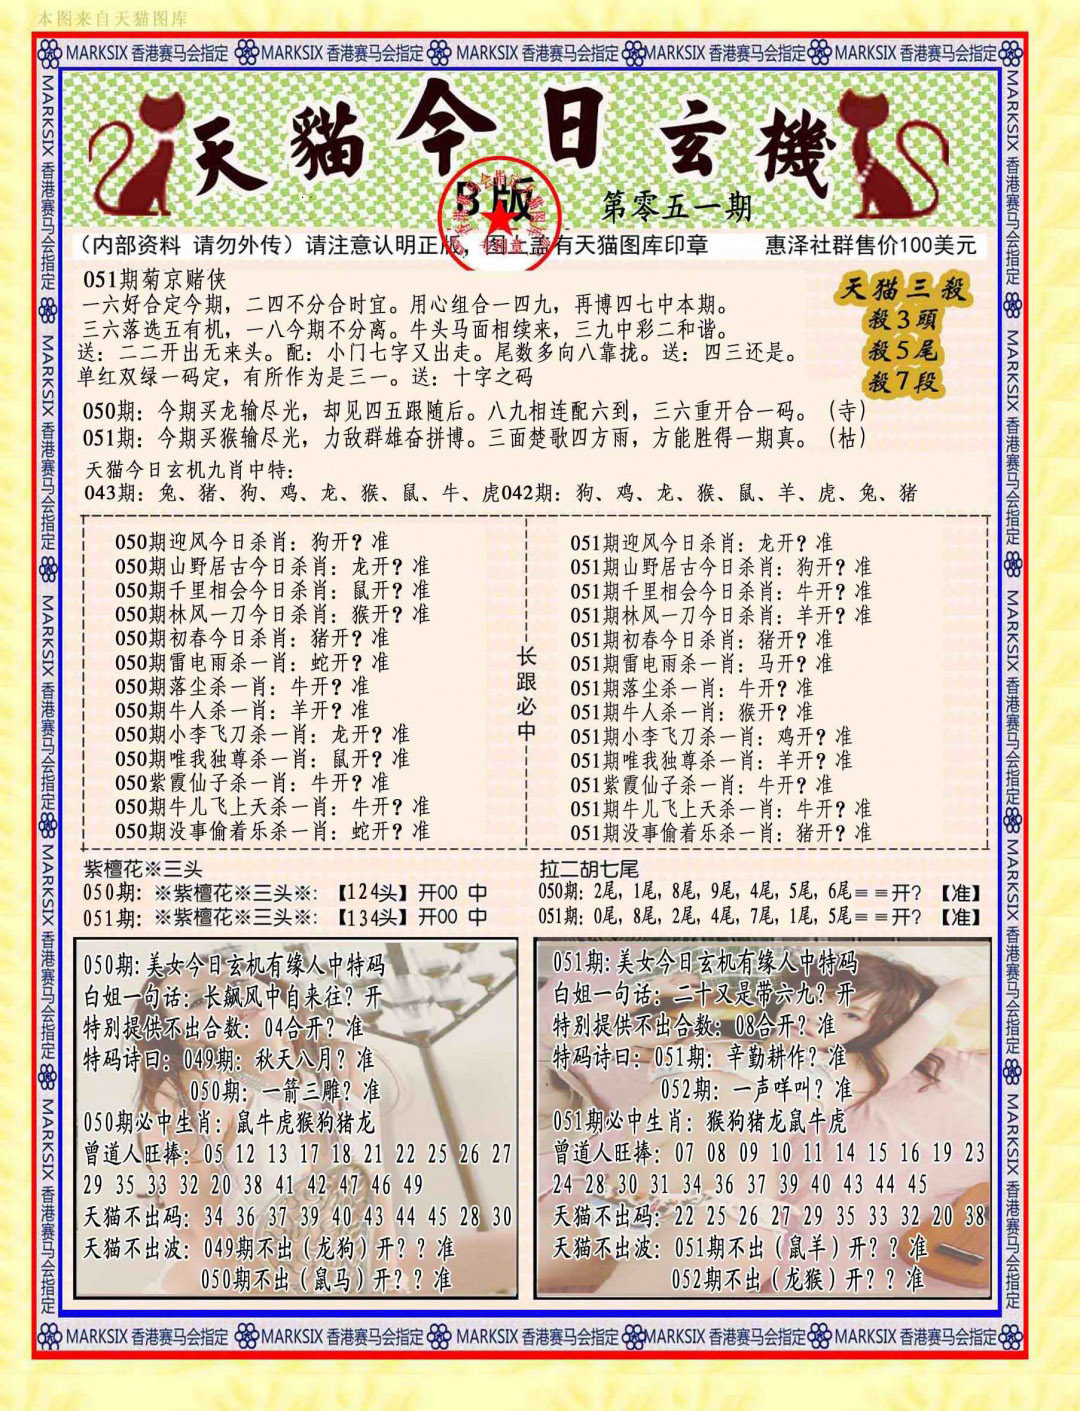 本图来自天猫图库
MARKSIX 香港赛马会指定 MARKSIX 香港赛马会指定 MARKSIX 香港赛马会指定 MARKSIX 香港赛马会指定 MARKSIX 香港赛马会指定
天貓今日玄機
B版
第零五一期
（内部资料 请勿外传）请注意认明正版，图上盖有天猫图库印章 惠泽社群售价100美元
051期菊京赌侠
一六好合定今期，二四不分合时宜。用心组合一四九，再博四七中本期。
三六落选五有机，一八今期不分离。牛头马面相续来，三九中彩二和谐。
送：二二开出无来头。配：小门七字又出走。尾数多向八靠拢。送：四三还是。
单红双绿一码定，有所作为是三一。送：十字之码
天猫三殺
殺3頭
殺5尾
殺7段
050期：今期买龙输尽光，却见四五跟随后。八九相连配六到，三六重开合一码。（寺）
051期：今期买猴输尽光，力敌群雄奋拼博。三面楚歌四方雨，方能胜得一期真。（枯）
天猫今日玄机九肖中特：
043期：兔、猪、狗、鸡、龙、猴、鼠、牛、虎042期：狗、鸡、龙、猴、鼠、羊、虎、兔、猪
050期迎风今日杀肖：狗开？准
050期山野居古今日杀肖：龙开？准
050期千里相会今日杀肖：鼠开？准
050期林风一刀今日杀肖：猴开？准
050期初春今日杀肖：猪开？准
050期雷电雨杀一肖：蛇开？准
050期落尘杀一肖：牛开？准
050期牛人杀一肖：羊开？准
050期小李飞刀杀一肖：龙开？准
050期唯我独尊杀一肖：鼠开？准
050紫霞仙子杀一肖：牛开？准
050期牛儿飞上天杀一肖：牛开？准
050期没事偷着乐杀一肖：蛇开？准
长跟必中
051期迎风今日杀肖：龙开？准
051期山野居古今日杀肖：狗开？准
051期千里相会今日杀肖：牛开？准
051期林风一刀今日杀肖：羊开？准
051期初春今日杀肖：猪开？准
051期雷电雨杀一肖：马开？准
051期落尘杀一肖：牛开？准
051期牛人杀一肖：猴开？准
051期小李飞刀杀一肖：鸡开？准
051期唯我独尊杀一肖：羊开？准
051紫霞仙子杀一肖：牛开？准
051期牛儿飞上天杀一肖：牛开？准
051期没事偷着乐杀一肖：猪开？准
紫檀花※三头
050期：※紫檀花※三头※：【124头】开00 中
051期：※紫檀花※三头※：【134头】开00 中
拉二胡七尾
050期：2尾，1尾，8尾，9尾，4尾，5尾，6尾＝＝开？【准】
051期：0尾，8尾，2尾，4尾，7尾，1尾，5尾＝＝开？【准】
050期：美女今日玄机有缘人中特码
白姐一句话：长飙风中自来往？开
特别提供不出合数：04合开？准
特码诗曰：049期：秋天八月？准
050期：一箭三雕？准
050期必中生肖：鼠牛虎猴狗猪龙
曾道人旺捧：05 12 13 17 18 21 22 25 26 27
29 35 33 32 20 38 41 42 47 46 49
天猫不出码：34 36 37 39 40 43 44 45 28 30
天猫不出波：049期不出（龙狗）开？？准
050期不出（鼠马）开？？准
051期：美女今日玄机有缘人中特码
白姐一句话：二十又是带六九？开
特别提供不出合数：08合开？准
特码诗曰：051期：辛勤耕作？准
052期：一声咩叫？准
051期必中生肖：猴狗猪龙鼠牛虎
曾道人旺捧：07 08 09 10 11 14 15 16 19 23
24 28 30 31 34 36 37 39 40 43 44 45
天猫不出码：22 25 26 27 29 35 33 32 20 38
天猫不出波：051期不出（鼠羊）开？？准
052期不出（龙猴）开？？准
MARKSIX 香港赛马会指定 MARKSIX 香港赛马会指定 MARKSIX 香港赛马会指定 MARKSIX 香港赛马会指定 MARKSIX 香港赛马会指定
MARKSIX 香港赛马会指定 MARKSIX 香港赛马会指定 MARKSIX 香港赛马会指定 MARKSIX 香港赛马会指定 MARKSIX 香港赛马会指定
MARKSIX 香港赛马会指定 MARKSIX 香港赛马会指定 MARKSIX 香港赛马会指定 MARKSIX 香港赛马会指定 MARKSIX 香港赛马会指定